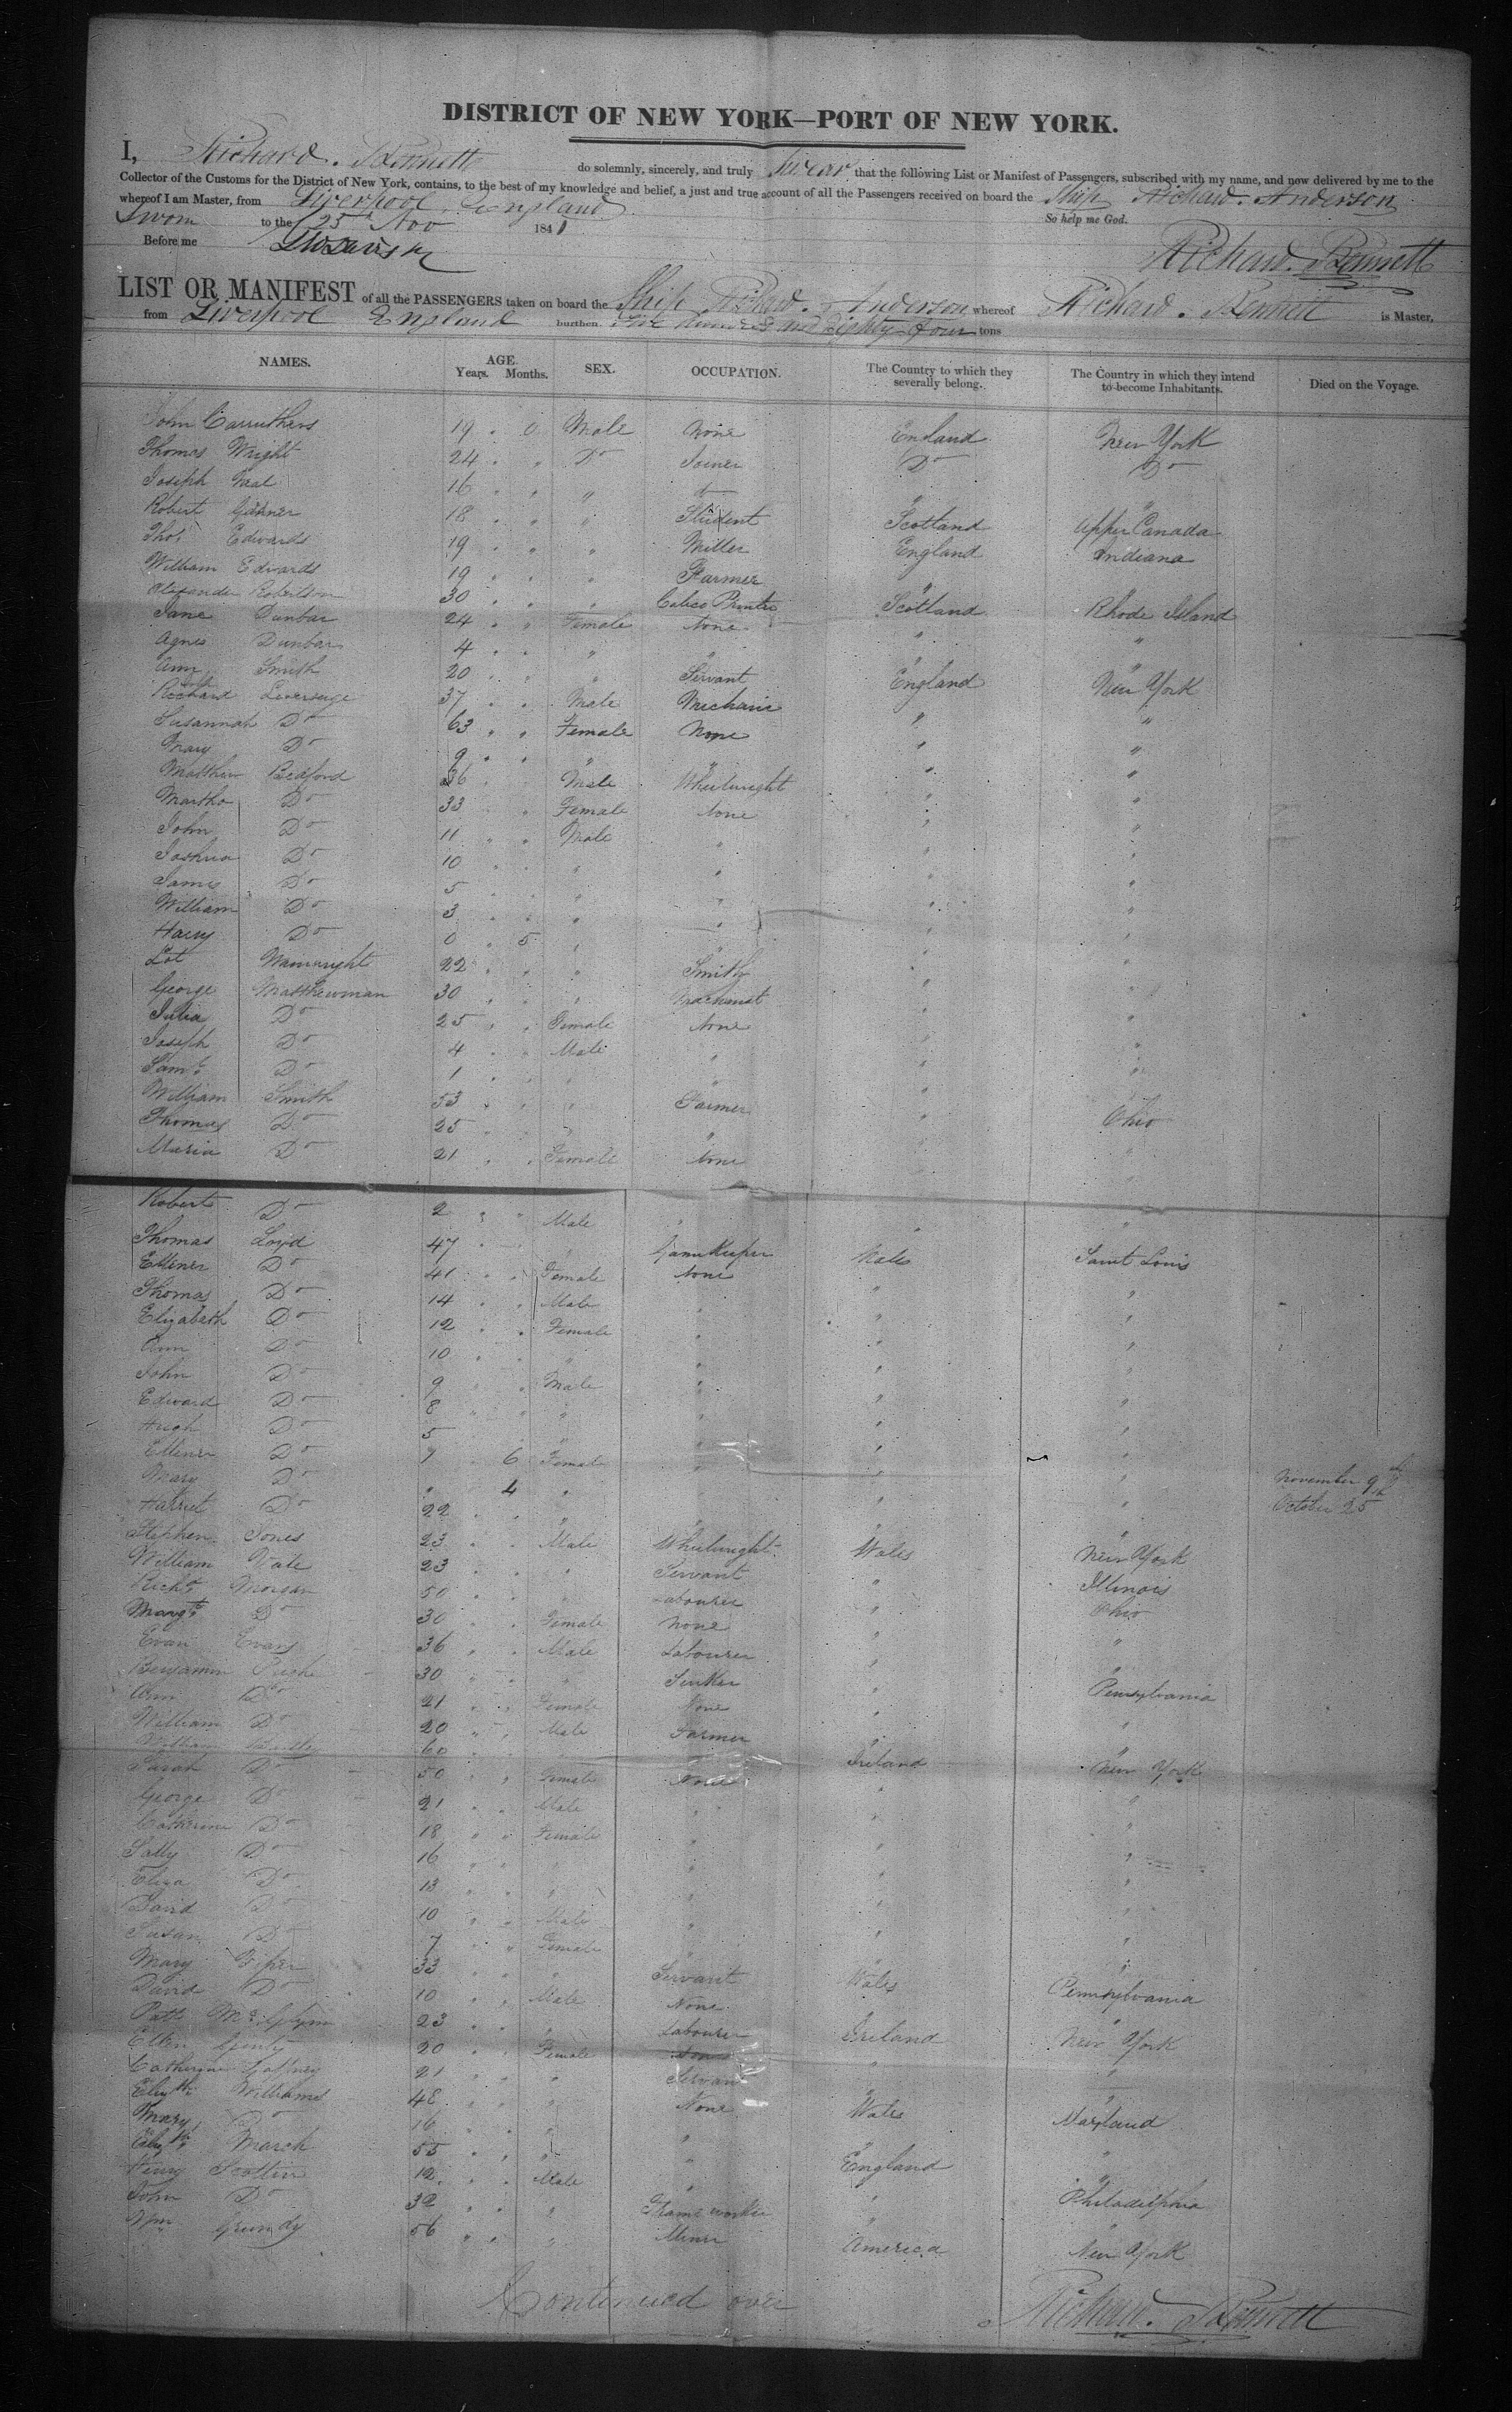 DISTRICT OF NEW YORK—PORT OF NEW YORK.
I, Richard. Bennett do solemnly, sincerely, and truly Swear that the following List or Manifest of Passengers, subscribed with my name, and now delivered by me to the
Collector of the Customs for the District of New York, contains, to the best of my knowledge and belief, a just and true account of all the Passengers received on board the Ship Richard. Anderson
whereof I am Master, from Liverpool, England
Sworn to the 25 Nov 1841 So help me God.
Before me
Richard. Bennett
LIST OR MANIFEST of all the PASSENGERS taken on board the Ship Richard. Anderson whereof Richard. Bennett is Master,
from Liverpool England burthen. Five Hundred and Eighty four tons
NAMES. AGE. Years. Months. SEX. OCCUPATION. The Country to which they severally belong. The Country in which they intend to become Inhabitants. Died on the Voyage.
John Carruthers 19 . 0 Male None England New York
Thomas Wright 24 . " Do Joiner Do Do
Joseph 16 . " " " "
Robert 18 . " " Student Scotland Upper Canada
Thos. Edwards 19 . " " Miller England Indiana
William Edwards 19 . " " Farmer " "
Alexander Robertson 30 . " " Calico Printer Scotland Rhode Island
Jane Dunbar 24 . " Female None " "
Agnes Dunbar 4 . " " " " "
Ann Smith 20 . " " Servant England New York
Richard Leversege 37 . " Male Mechanic " "
Susannah Do 63 " " Female None " "
Mary Do 9 . " " " " "
Matthew Bedford 36 Male Wheelwright " "
Martha Do 33 . " Female None " "
John Do 11 " " Male " " "
Joshua Do 10 . " " " " "
James Do 5 . " " " " "
William Do 3 . " " " " "
Harry Do 0 . 5 " " " "
Lot Wainwright 22 . " " Smith " "
George Matthewman 30 . " " Machinist " "
Julia Do 25 . " Female None " "
Joseph Do 4 . " Male " " "
Saml. Do 1 . " " " " "
William Smith 53 . " " Farmer " Ohio
Thomas Do 25 . " " " " "
Maria Do 21 . " Female None " "
Robert Do 2 " " Male " " "
Thomas Loyd 47 . " " Game Keeper Wales Saint Louis
Ellener Do 41 . " Female None " "
Thomas Do 14 . " Male " " "
Elizabeth Do 12 . " Female " " "
Ann Do 10 . " " " " "
John Do 9 " " Male " " "
Edward Do 8 " " " " " "
Hugh Do 5 " " " "
Ellener Do 6 Female " " " November 9th
Mary Do " 4 " " " " October 25th
Harriet Do 22 . " " " " "
Stephen Jones 23 . " Male Wheelwright Wales New York
William Vale 23 . " " Servant " Illinois
Richd. Morgan 50 . " " Labourer " Ohio
Margt. Do 30 . " Female None " "
Evan Evans 36 " . Male Labourer " "
Benjamin 30 " " " Sinker " Pensylvania
Ann Do 21 " . Female None " "
William Do 20 " " Male Farmer " "
William 60 " " " Ireland New York
Sarah Do 50 . " Female None " "
George Do 21 . " Male " " "
Catherine Do 18 " " Female " " "
Sally Do 16 " " " " " "
Eliza Do 13 " " " " " "
David Do 10 " " Male " " "
Susan Do 7 " " Female " " "
Mary Piper 33 " " " Servant Wales Pennsylvania
David Do 10 " " Male None " "
Patk 23 . " " Labourer Ireland New York
Ellen 20 . " Female " "
Catherine Gaffney 21 " " " Servant " "
Elizth. Williams 48 " " " None Wales Maryland
Mary Do 16 " " " " " "
Elizth. March 55 " " " " England "
Henry Scotten 12 . " Male " " Philadelphia
John Do 32 " " " Frame worker " "
Wm Grundy 56 " " " Miner America New York
Continued over Richard. Bennett